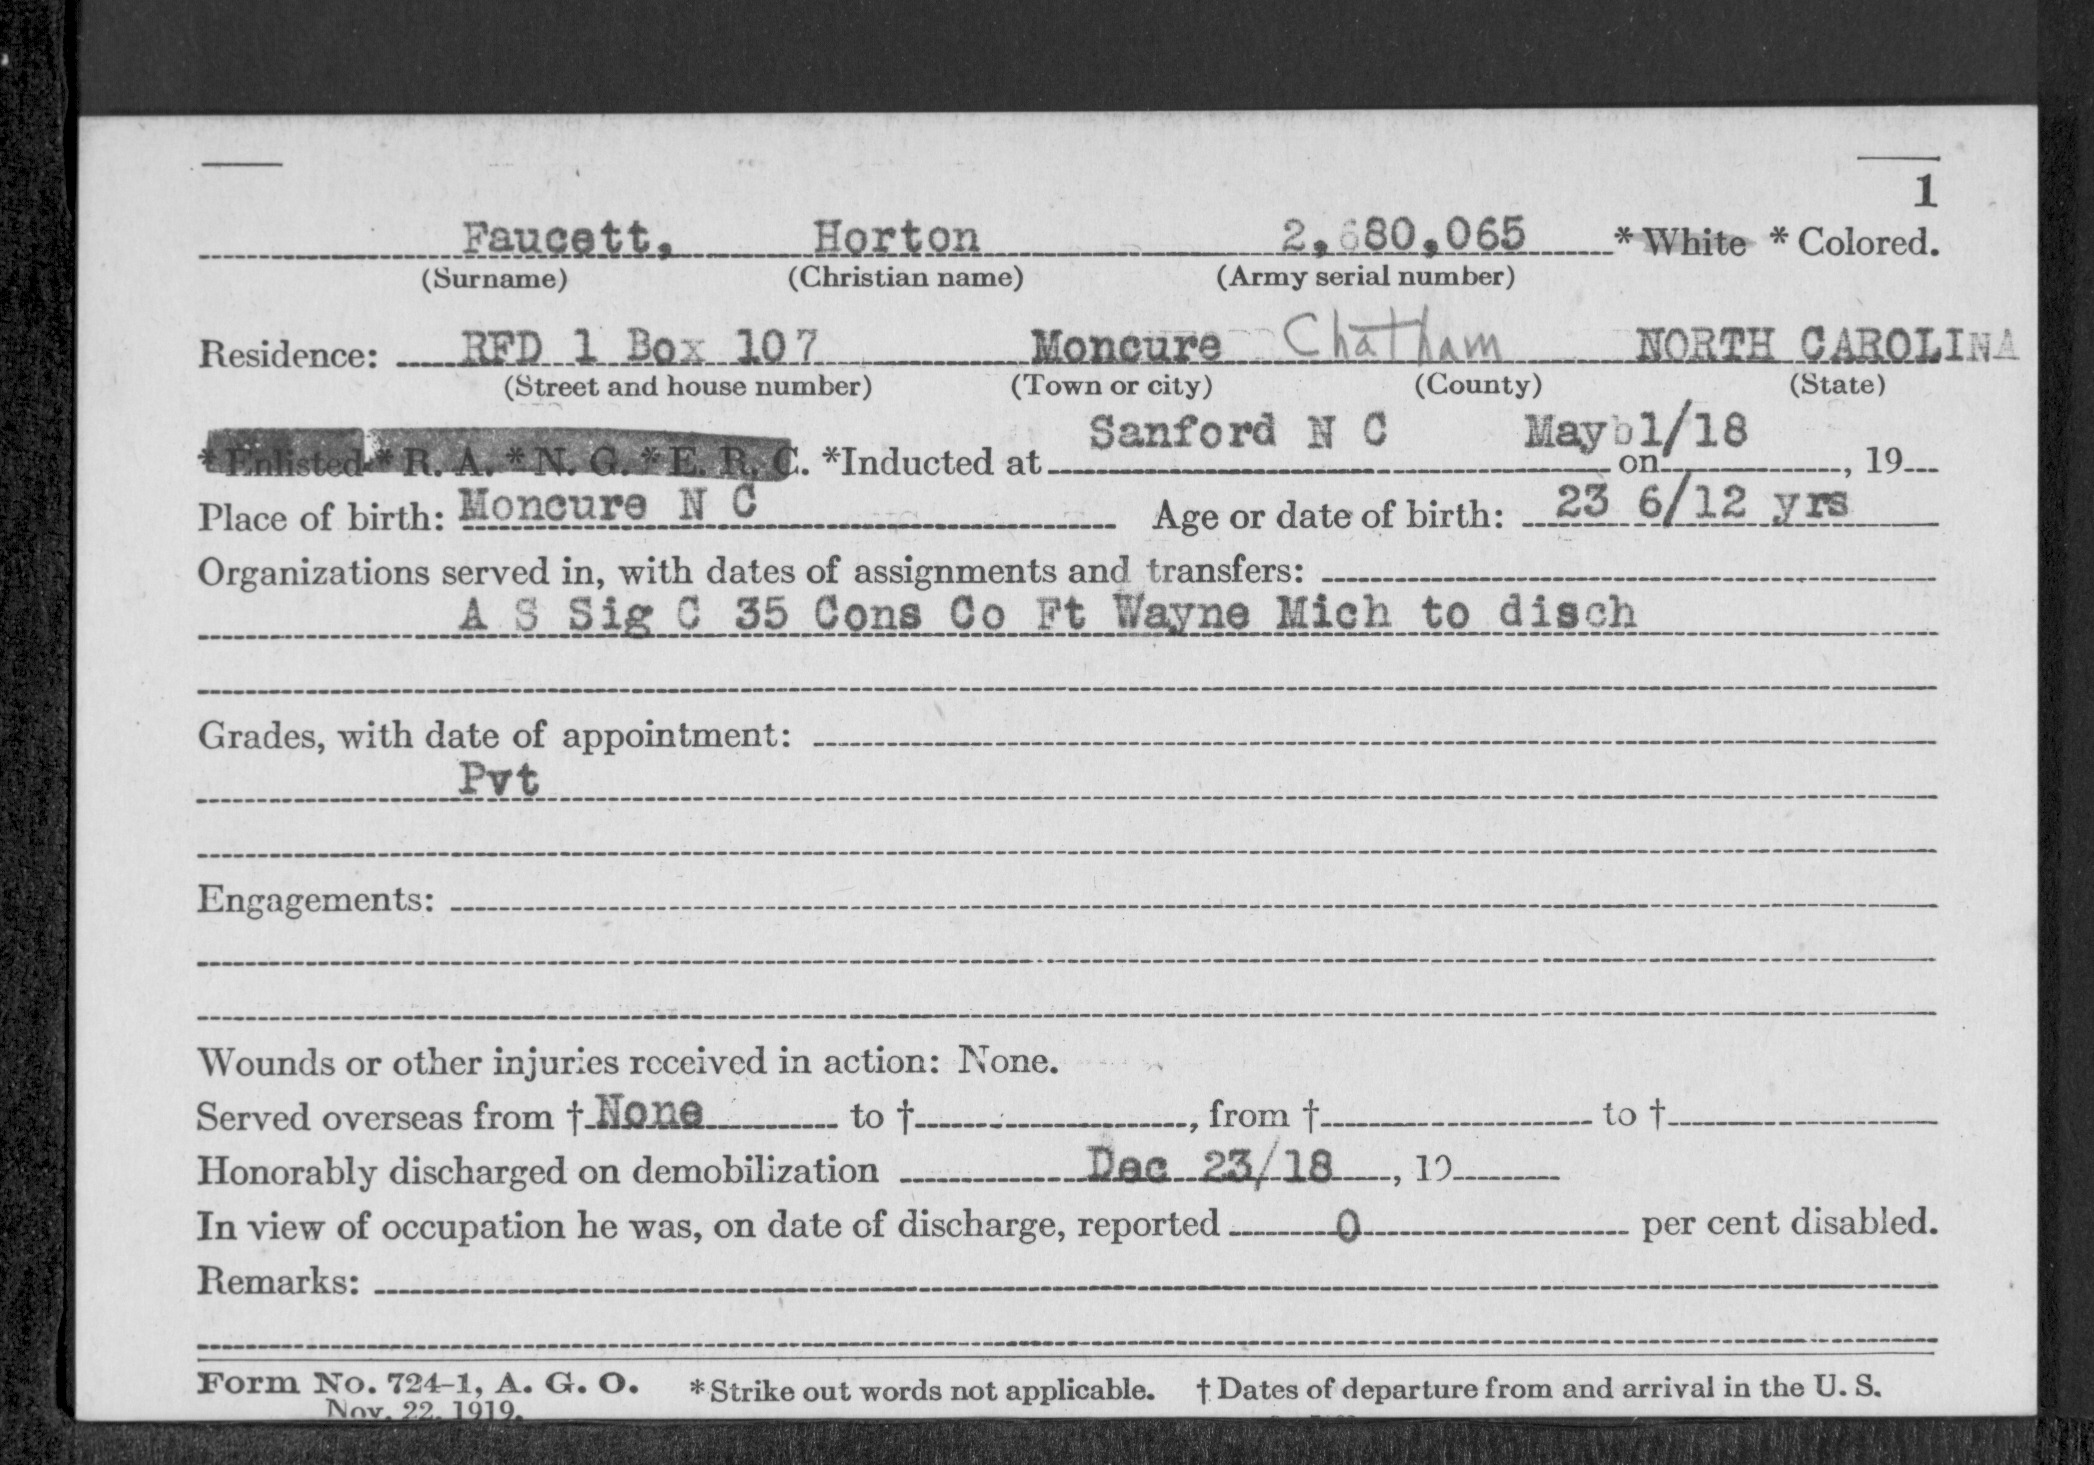 1
Faucett, Horton 2,680,065 * White * Colored.
(Surname) (Christian name) (Army serial number)
Residence: RFD 1 Box 107 Moncure Chatham NORTH CAROLINA
(Street and house number) (Town or city) (County) (State)
Sanford N C May 1/18
* Enlisted * R. A. * N. G. * E. R. C. *Inducted at on , 19
Place of birth: Moncure N C Age or date of birth: 23 6/12 yrs
Organizations served in, with dates of assignments and transfers:
A S Sig C 35 Cons Co Ft Wayne Mich to disch
Grades, with date of appointment:
Pvt
Engagements:
Wounds or other injuries received in action: None.
Served overseas from † None to † , from † to †
Honorably discharged on demobilization Dec 23/18 , 19
In view of occupation he was, on date of discharge, reported 0 per cent disabled.
Remarks:
Form No. 724-1, A. G. O. *Strike out words not applicable. † Dates of departure from and arrival in the U. S.
Nov. 22, 1919.